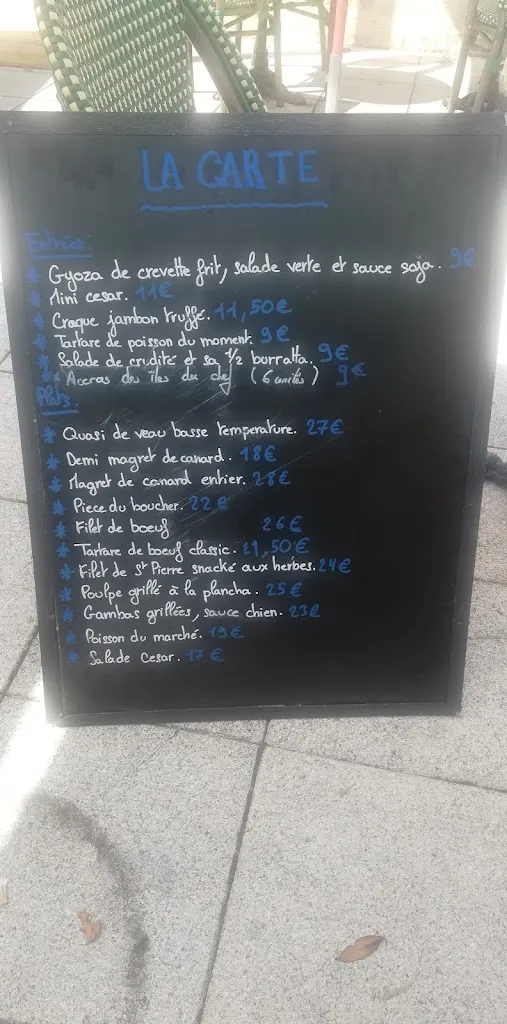 LA CARTE
Entrées:
* Gyoza de crevette frit, salade verte et sauce soja. 9€
* Mini cesar. 11€
* Croque jambon truffé. 11,50€
* Tartare de poisson du moment. 9€
* Salade de crudité et sa 1/2 burratta. 9€
* Accras des îles du chef (6 unités) 9€
Plats.
* Quasi de veau basse temperature. 27€
* Demi magret de canard. 18€
* Magret de canard entier. 28€
* Piece du boucher. 22€
* Filet de boeuf 26€
* Tartare de boeuf classic. 21,50€
* Filet de St Pierre snacké aux herbes. 24€
* Poulpe grillé à la plancha. 25€
* Gambas grillées, sauce chien. 23€
* Poisson du marché. 19€
* Salade Cesar. 17€